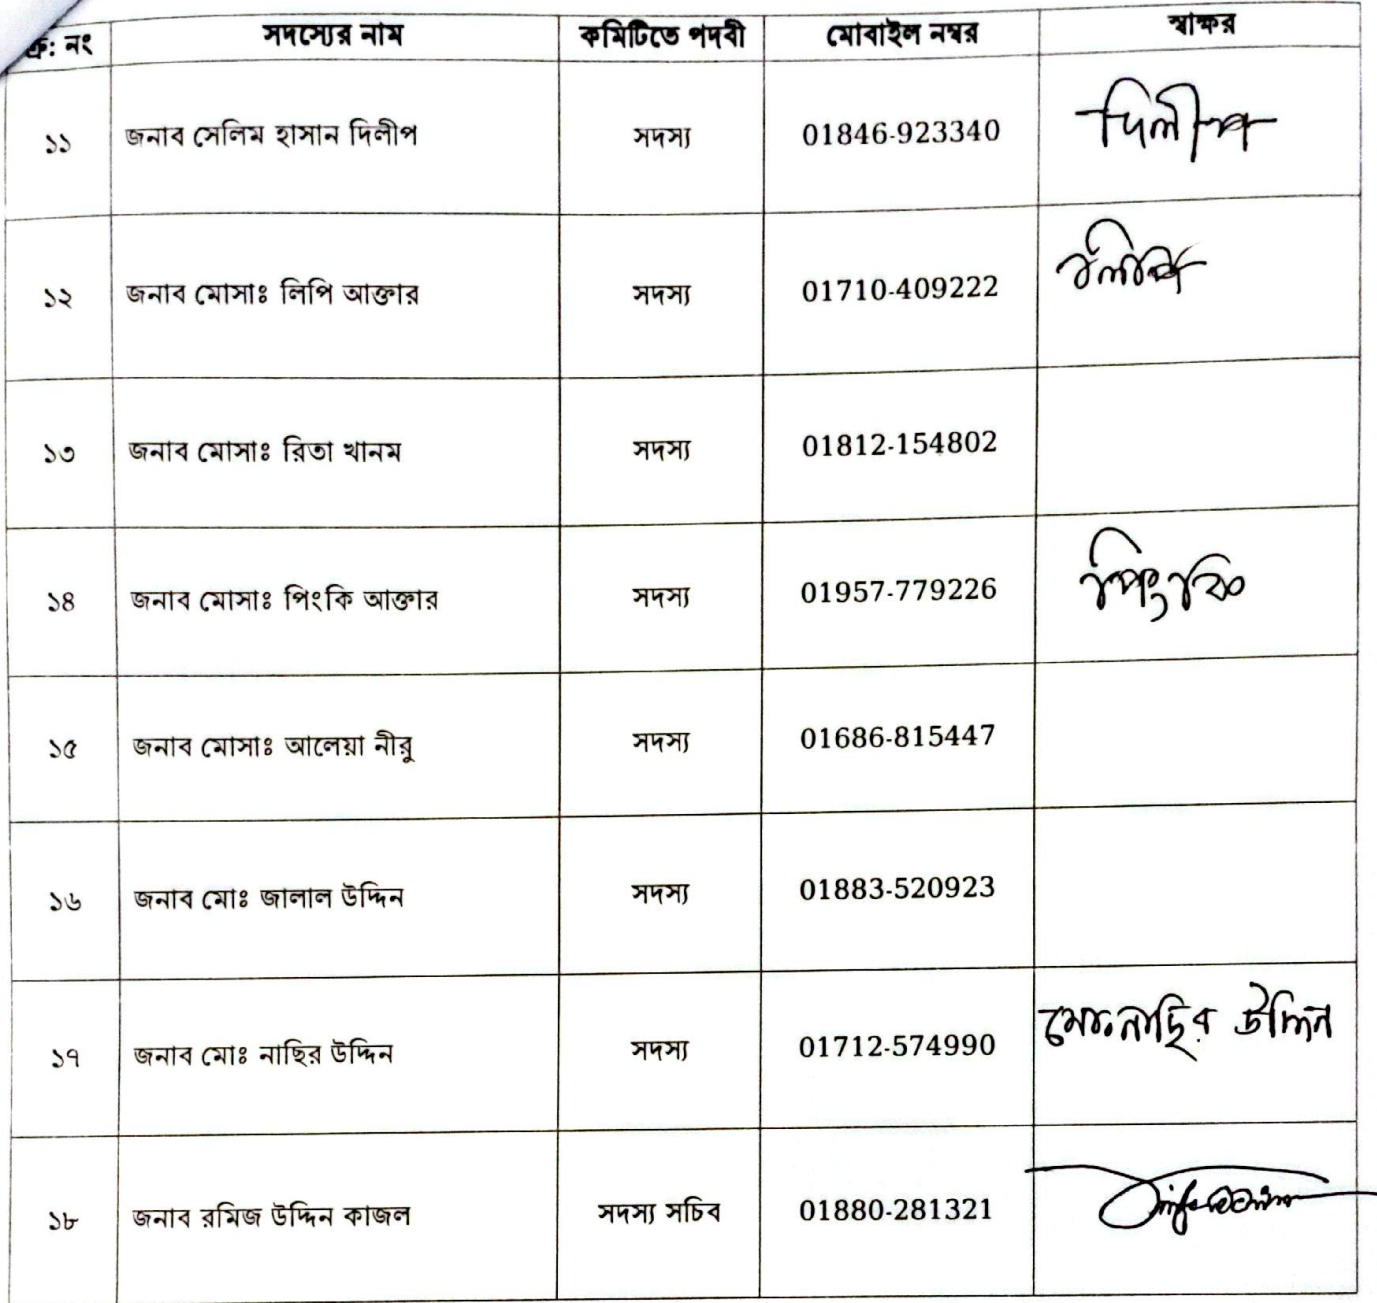 ক্র: নং সদস্যের নাম কমিটিতে পদবী মোবাইল নম্বর স্বাক্ষর
১১ জনাব সেলিম হাসান দিলীপ সদস্য 01846-923340 দিলীপ
১২ জনাব মোসাঃ লিপি আক্তার সদস্য 01710-409222
১৩ জনাব মোসাঃ রিতা খানম সদস্য 01812-154802
১৪ জনাব মোসাঃ পিংকি আক্তার সদস্য 01957-779226 পিংকি
১৫ জনাব মোসাঃ আলেয়া নীরু সদস্য 01686-815447
১৬ জনাব মোঃ জালাল উদ্দিন সদস্য 01883-520923
১৭ জনাব মোঃ নাছির উদ্দিন সদস্য 01712-574990 মোঃ নাছির উদ্দিন
১৮ জনাব রমিজ উদ্দিন কাজল সদস্য সচিব 01880-281321